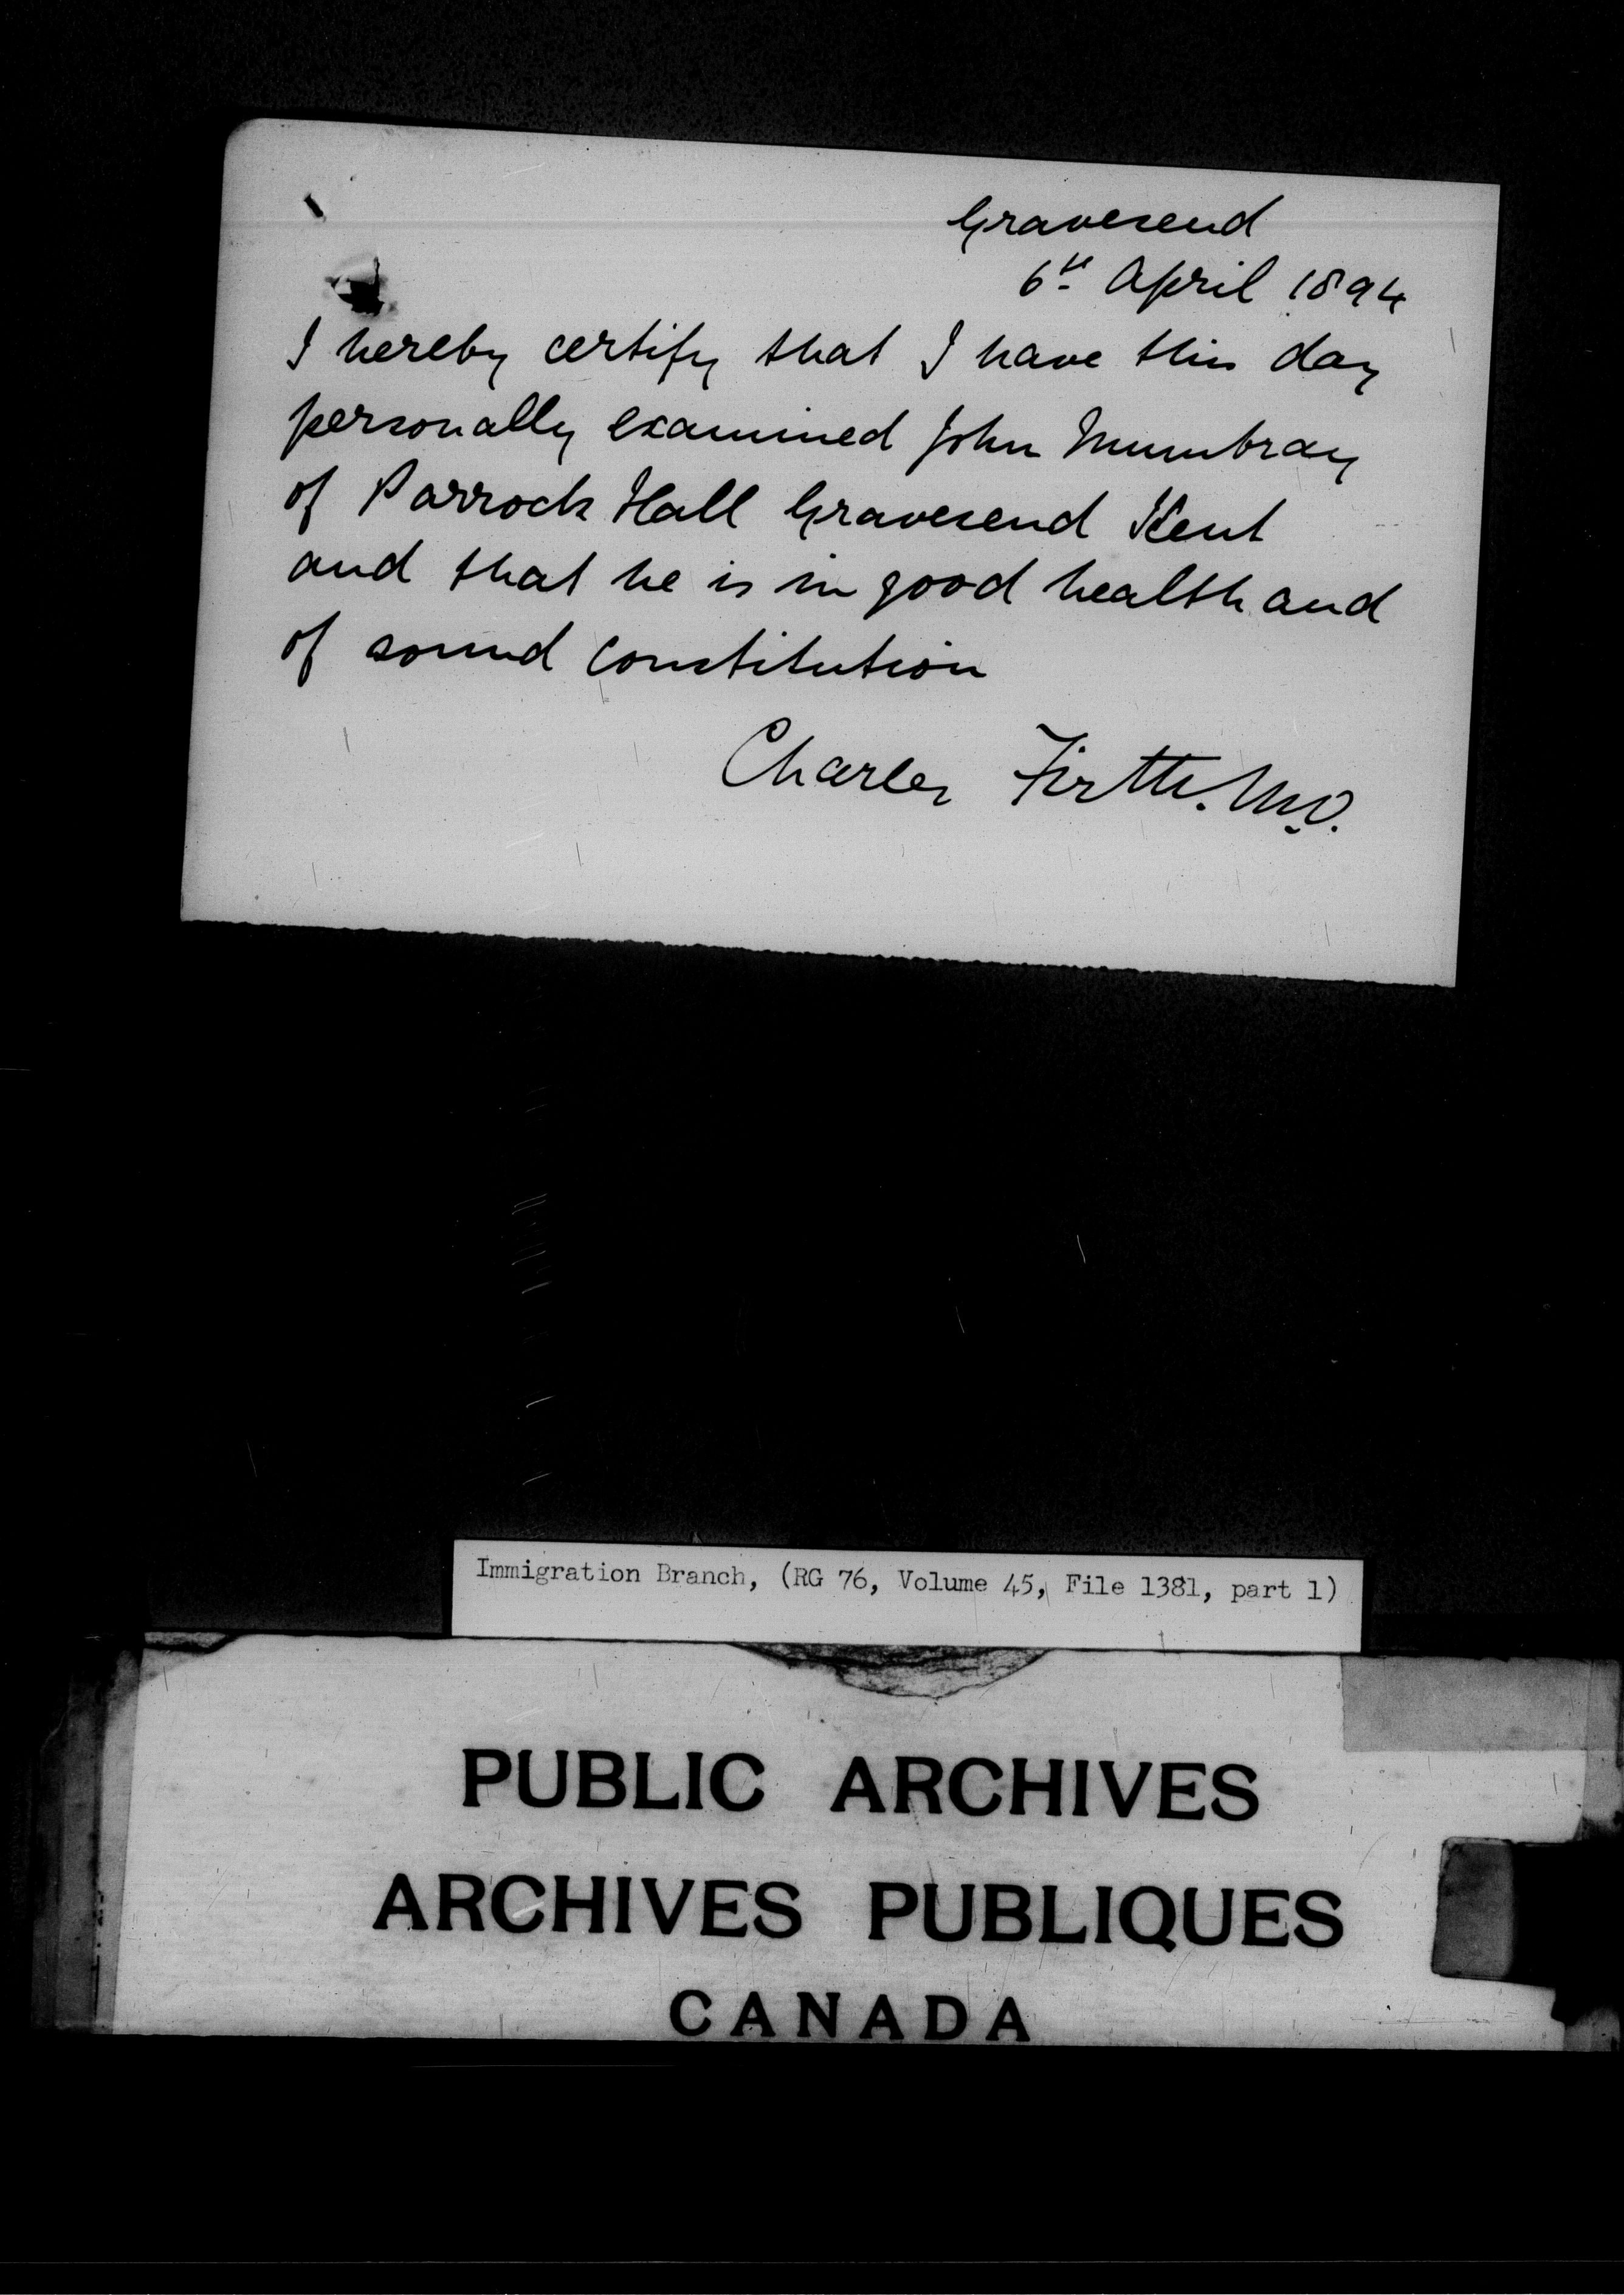 Gravesend
6th April 1894
I hereby certify that I have this day
personally examined John Mumbray
of Parrock Hall Gravesend Kent
and that he is in good health and
of sound constitution
Charles Firth. M.D.
Immigration Branch, (RG 76, Volume 45, File 1381, part 1)
PUBLIC ARCHIVES
ARCHIVES PUBLIQUES
CANADA